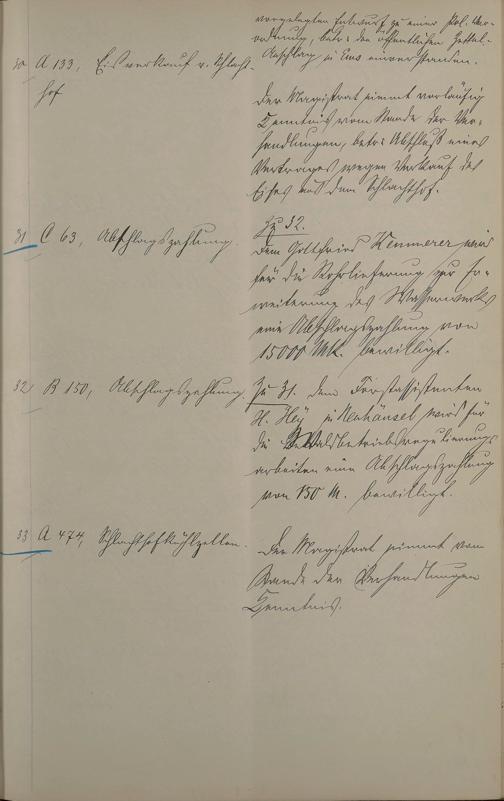 vorgelegten Entwurf zu einer Pol. Ver-
ordnung, betr: den öffentlichen Zettel-
Anschlag in Ems einverstanden.
30 A 133, Eisverkauf v. Schlacht-
hof
Der Magistrat nimmt vorläufig
Kenntnis vom Stande der Ver-
handlungen, betr: Abschluß eines
Vertrages wegen Verkauf des
Eises aus dem Schlachthof.
31 C 63, Abschlagszahlung.
Zu 32.
Dem Gottfried Kemmerer wird
für die Rohrlieferung zur Er-
weiterung des Wasserwerks
eine Abschlagszahlung von
15000 Mk. bewilligt.
32 B 150, Abschlagszahlung.
Zu 31. Dem Forstassistenten
H. Hey in Neuhäusel wird für
die Waldbetriebsregulierungs-
arbeiten eine Abschlagszahlung
von 150 M. bewilligt.
33 A 474, Schlachthofkühlzellen.
Der Magistrat nimmt vom
Stande der Verhandlungen
Kenntnis.